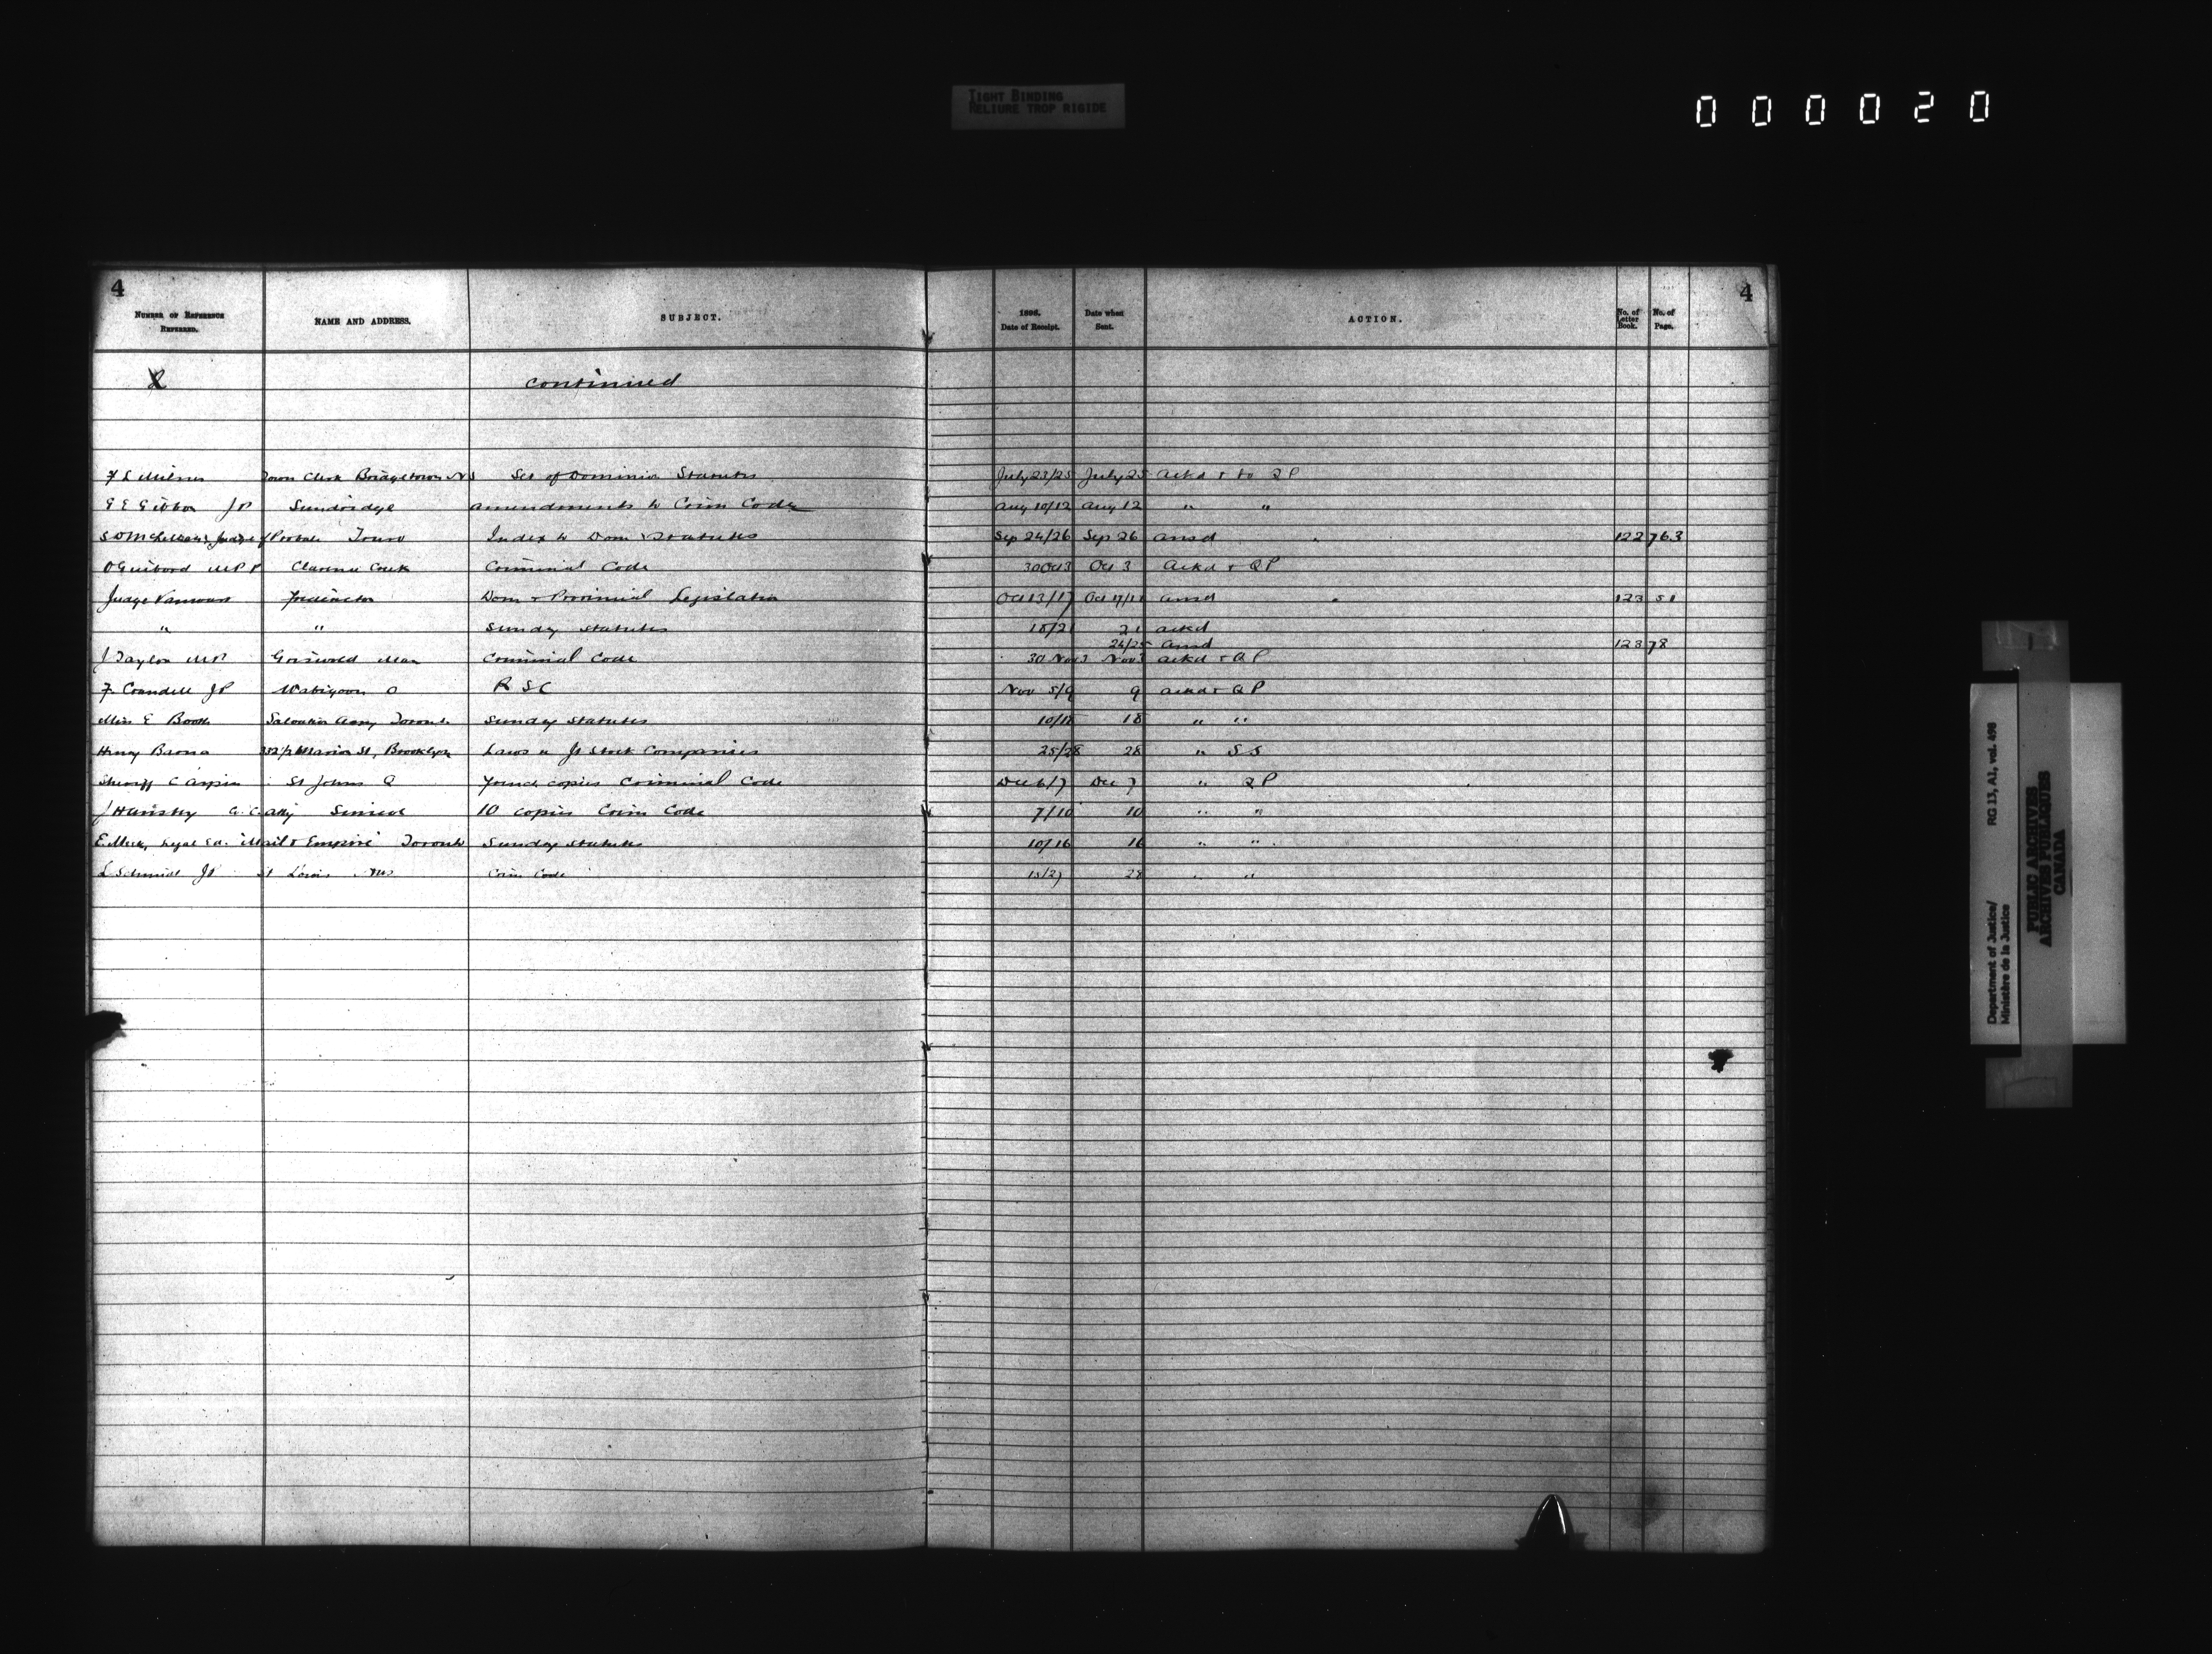 TIGHT BINDING
RELIURE TROP RIGIDE
000020
4
4
NUMBER OF REFERENCE REFERRED. NAME AND ADDRESS. SUBJECT. 1898. Date of Receipt. Date when Sent. ACTION. No. of Letter Book. No. of Page.
continued
F L Milner Town Clerk Bridgetown NS Set of Dominion Statutes July 23/25 July 25 ackd & to QP
G E Gibbon JP Sundridge amendments to Crim Code Aug 10/12 Aug 12 " "
Judge of Probate Truro Index to Dom Statutes Sep 24/26 Sep 26 ansd 122 763
O Guibord MPP Clarence Creek Criminal Code 30 Oct 3 Oct 3 Ackd & QP
Judge Vanwart Fredericton Dom & Provincial Legislation Oct 13/17 Oct 17/ ansd 123 51
" " Sunday statutes 18/21 21 ackd
24/25 ansd 123 78
J Taylor Griswold Man Criminal Code 30 Nov 3 Nov 3 ackd & QP
F. Crandell JP Wabigoon O RSC Nov 5/9 9 ackd & QP
Miss E Booth Salvation Army Toronto Sunday Statutes 10/18 18 " "
Henry 352 1/2 Marion St, Brooklyn Laws re Jt Stock Companies 25/28 28 " SS
Sheriff C Arpin St Johns Q copies Criminal Code Dec 6/7 Dec 7 " QP
J C. C. Atty Simcoe 10 copies Crim Code 7/10 10 " "
E. Meek, Legal Ed. Mail & Empire Toronto Sunday statutes 10/16 16 " "
L Schmidt JP St Louis Crim Code 28 " "
Department of Justice/
Ministère de la Justice
RG 13, A1, vol. 498
PUBLIC ARCHIVES
ARCHIVES PUBLIQUES
CANADA